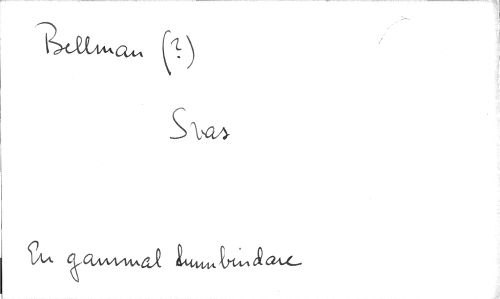 Bellman (?)
Svas
En gammal tunnbindare